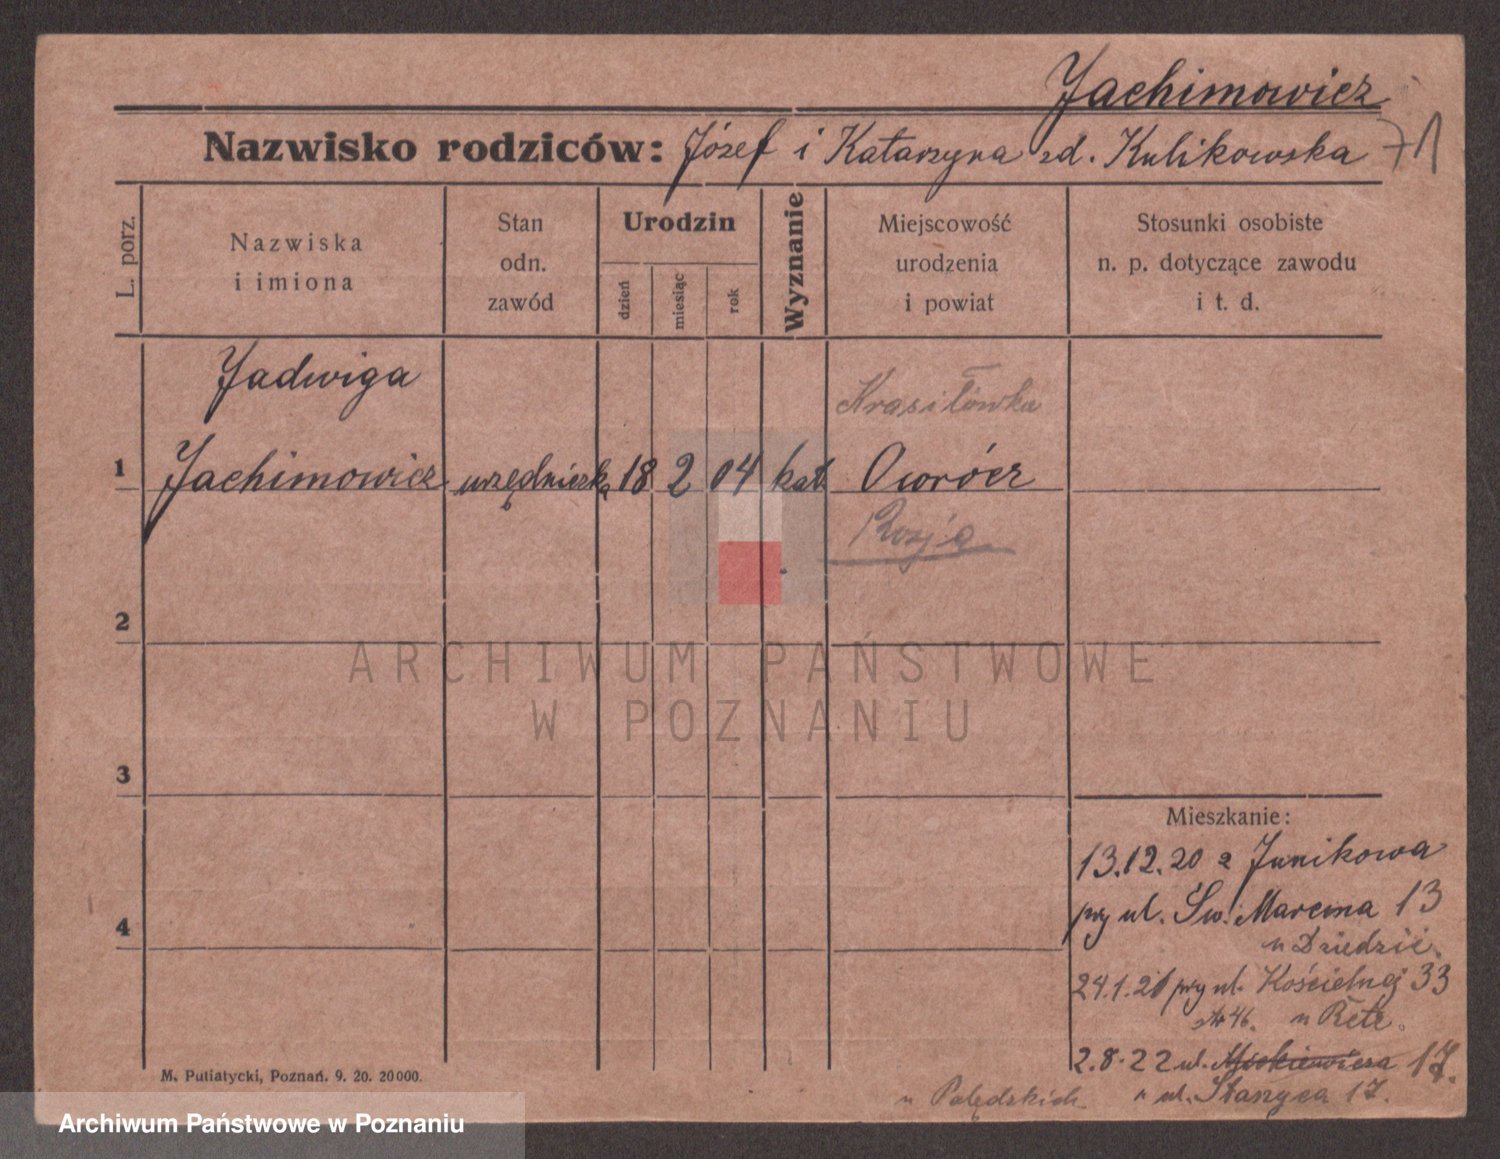 Jachimowicz
Nazwisko rodziców: Józef i Katarzyna zd. Kulikowska 71
L. porz.
Nazwiska
i imiona
Stan
odn.
zawód
Urodzin
dzień
miesiąc
rok
Wyznanie
Miejscowość
urodzenia
i powiat
Stosunki osobiste
n. p. dotyczące zawodu
i t. d.
Jadwiga
Krasiłówka
1 Jachimowicz urzędniczka 18 2 04 kat. Owrócz
Rosja
2
ARCHIWUM PAŃSTWOWE
W POZNANIU
3
Mieszkanie:
13.12.20 z Junikowa
przy ul. Św. Marcina 13
4
u Dziedzic.
24.1.21 przy ul. Kościelnej 33
u
2.8.22 ul. Mickiewicza 17.
u ul. Staszyca 17.
u Palędzkich
M. Putiatycki, Poznań. 9. 20. 20000.
Archiwum Państwowe w Poznaniu